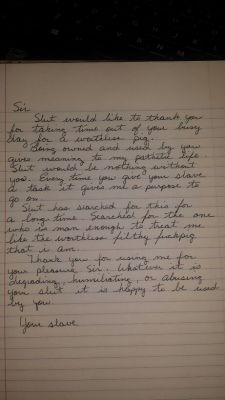 Sir
Slut would like to thank you
for taking time out of your busy
day for a worthless pig.
Being owned and used by you
gives meaning to my pathetic life.
Slut would be nothing without
you. Every time you give your slave
a task it gives me a purpose to
go on.
Slut has searched for this for
a long time. Searched for the one
who is man enough to treat me
like the worthless filthy fuckpig
that i am.
Thank you for using me for
your pleasure Sir. Whatever it is
degrading, humiliating, or abusing
your slut it is happy to be used
by you.
Your slave